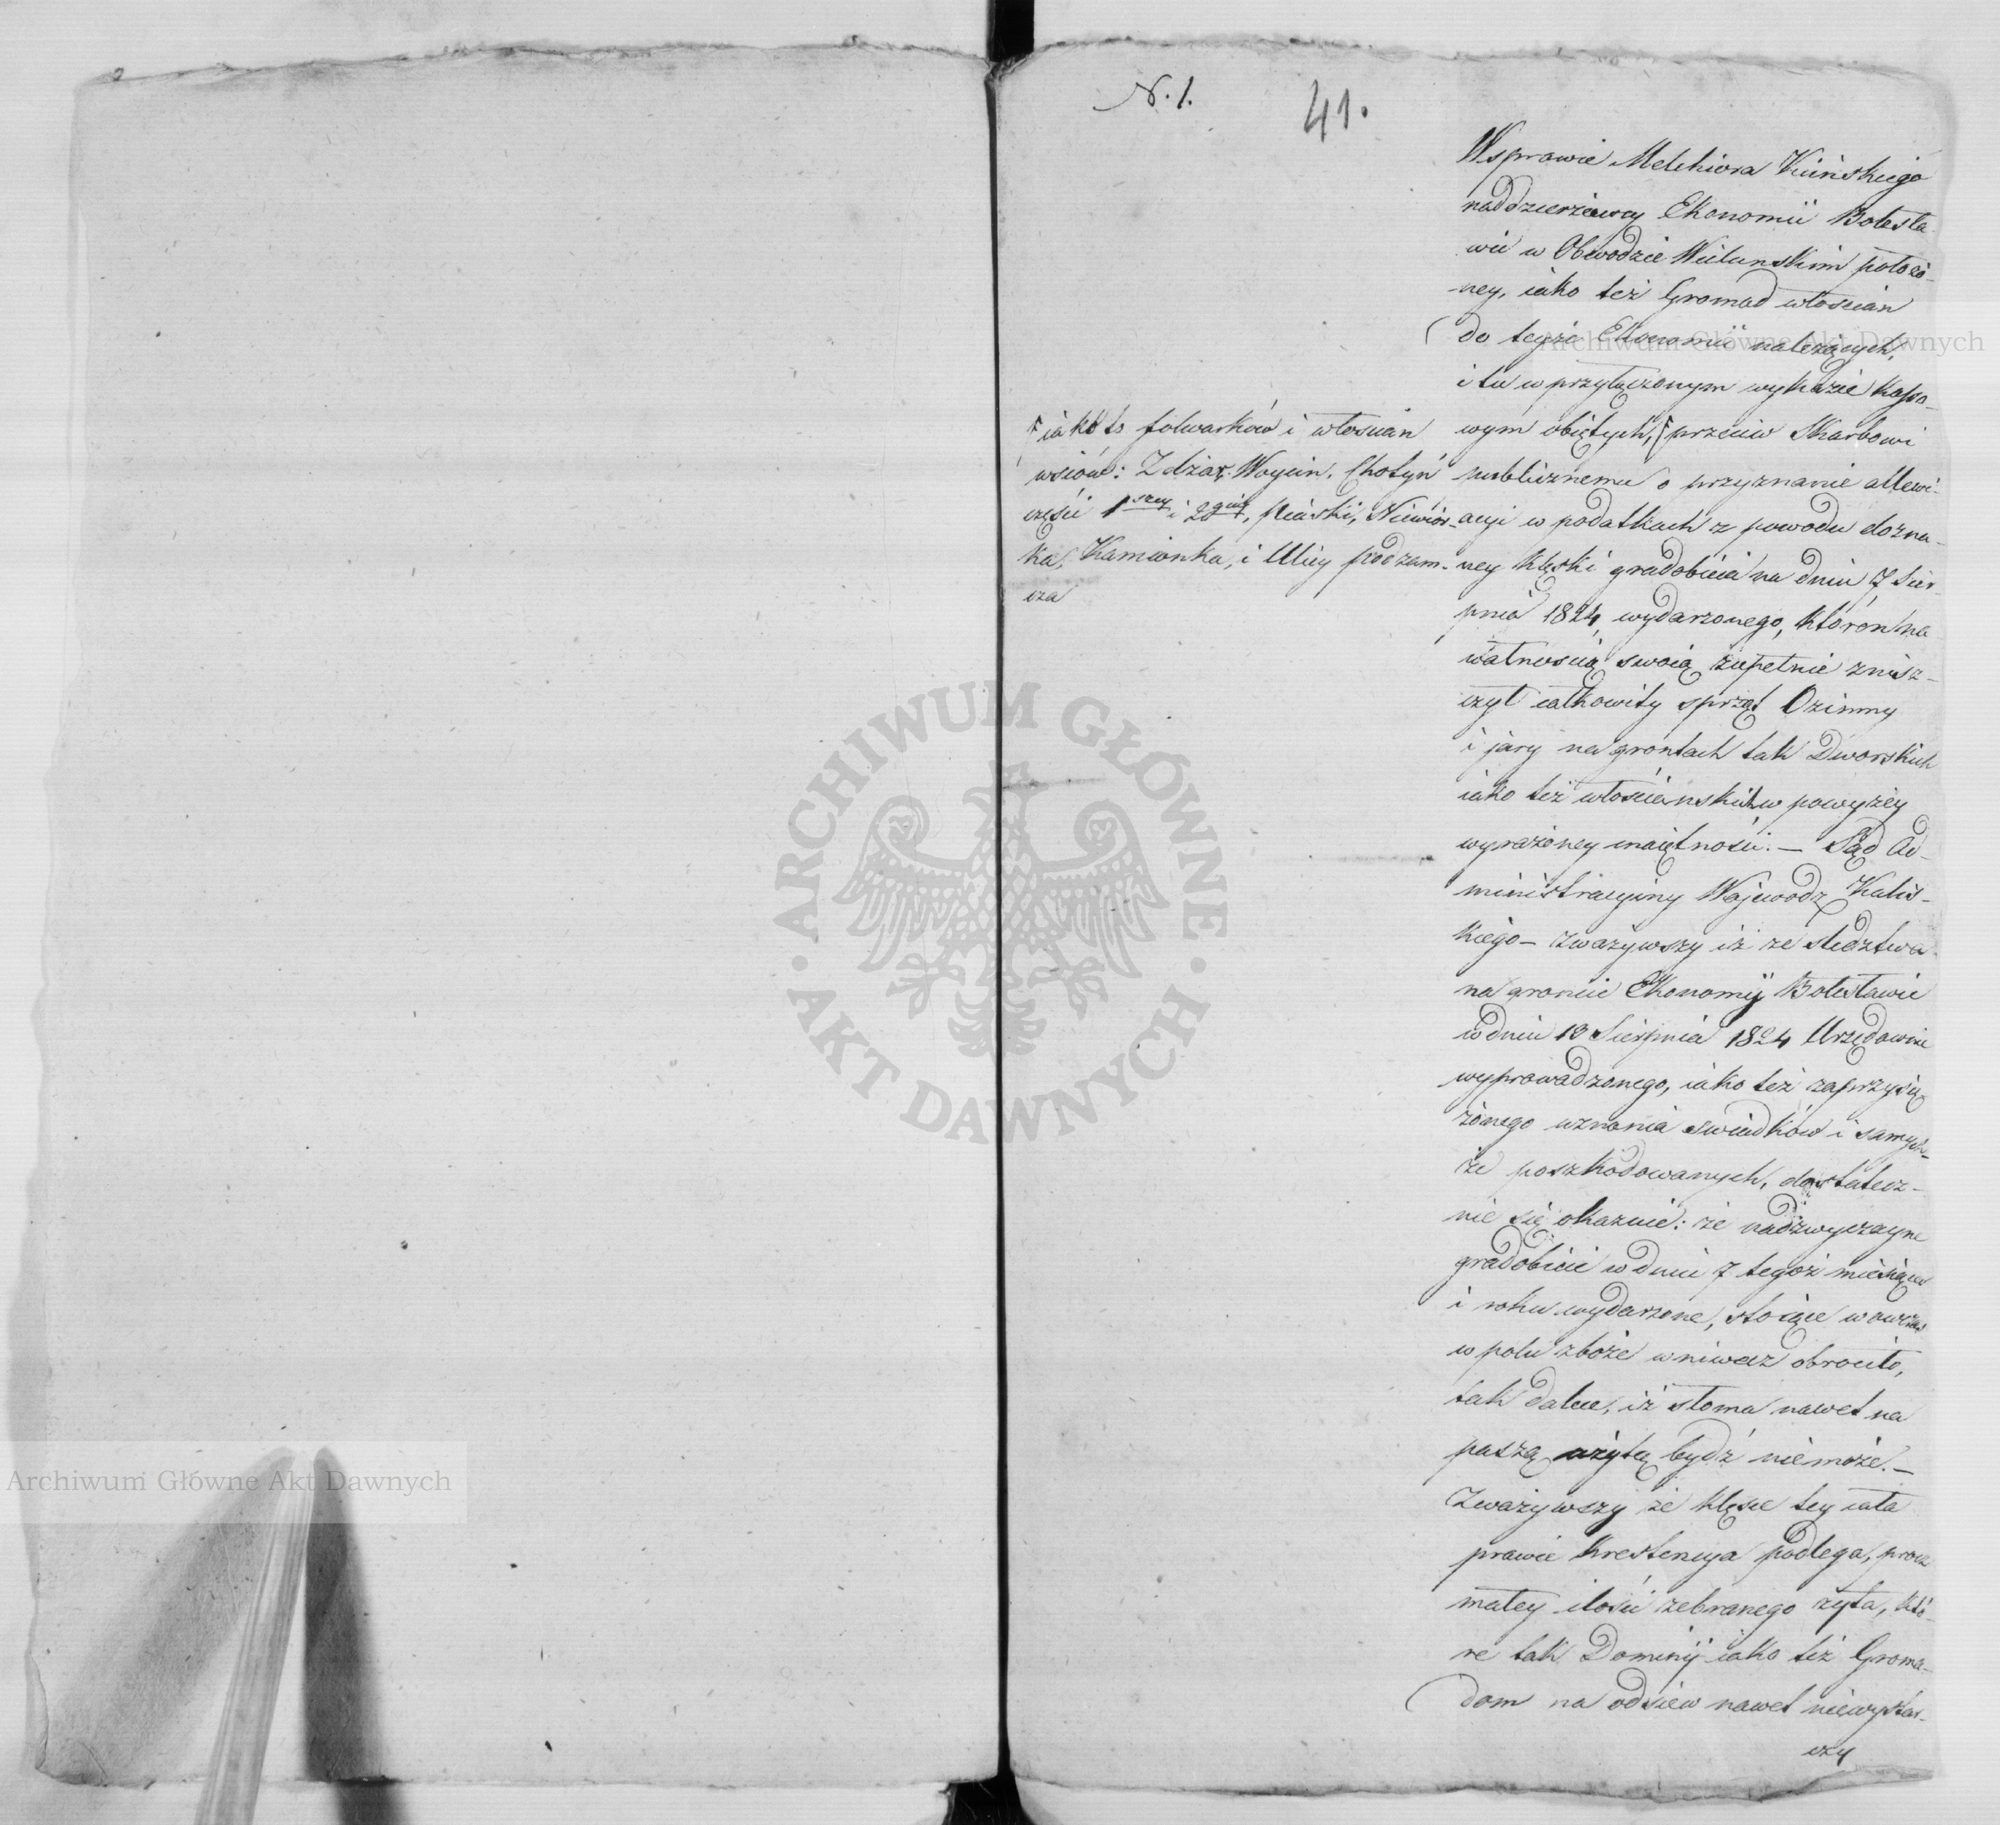 N. 1.
41.
W sprawie Melchiora Kiińskiego
naddzierżawcy Ekonomii Bolesła-
wie w Obwodzie Wieluńskim położó-
ney, iako też Gromad włoscian
do teyże Ekonomii należących,
i tu w przyłączonym wykazie Kasso-
wym obiętych, przeciw Skarbowi
publicznemu o przyznanie allewi-
acyi w podatkach z powodu dozna-
ney klęski gradobicia na dniu 7 Sier-
pnia 1824 wydarzonego, któren na-
wałnoscią swoią zupełnie znisz-
czył całkowity sprzęt Ozimny
i jary na grontach tak Dworskich
iako też włościańskich w powyżey
wyrażoney maiętności. — Sąd Ad-
ministracyiny Wojewodz. Kalis-
kiego — zważywszy iż ze sledztwa
na groncie Ekonomij Bolesławie
w dniu 13 Sierpnia 1824 Urzędownie
wyprowadzonego, iako też zaprzysię
żonego uznania swiadków i samych-
że poszkodowanych, dostatecz-
nie się okazuie: że nadzwyczayne
gradobicie w dniu 7 tegoż miesiąca
i roku wydarzone, stoiące wowczas
w polu zboże w niwecz obrociło,
tak dalece, iż słoma nawet na
paszą użytą bydź niemoże. —
Zważywszy że klęsce tey cała
prawie krestencya podlega, procz
małey ilości zebranego żyta, któ-
re tak Dominij iako też Groma-
dom na odsiew nawet niewystar-
czy
iako to folwarków i włoscian
wsiów: Zdżar, Woycin, Chotyń
części 1szey i 2giey, Piaski, Niwiós-
ka, Kamionka, i Ulicy podzam-
cza
Archiwum Główne Akt Dawnych
ARCHIWUM GŁÓWNE
AKT DAWNYCH
Archiwum Główne Akt Dawnych